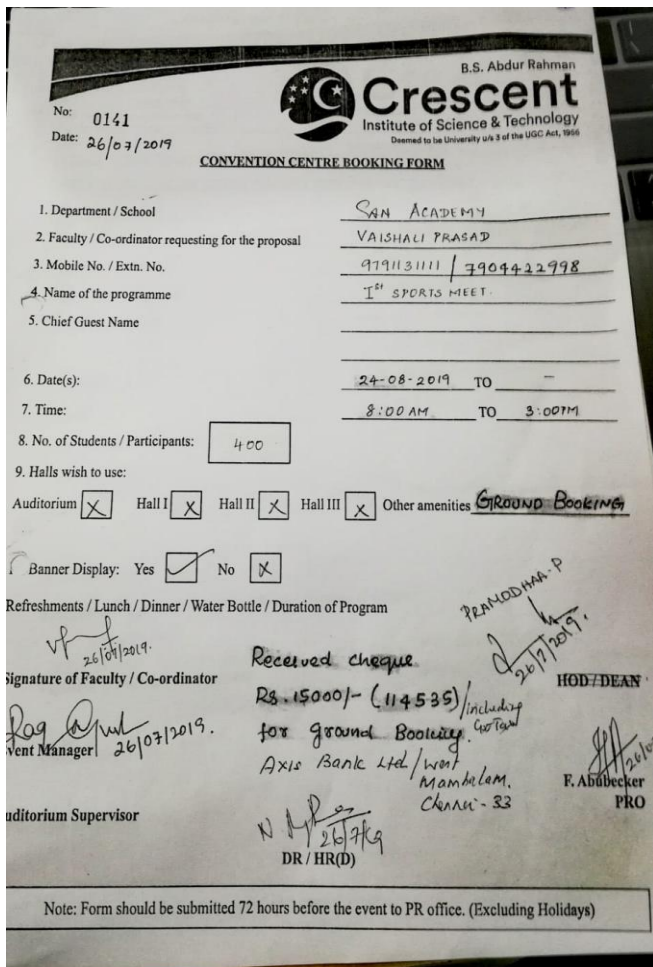 B.S. Abdur Rahman
Crescent
Institute of Science & Technology
Deemed to be University u/s 3 of the UGC Act, 1956
No: 0141
Date: 26/07/2019
CONVENTION CENTRE BOOKING FORM
1. Department / School SAN ACADEMY
2. Faculty / Co-ordinator requesting for the proposal VAISHALI PRASAD
3. Mobile No. / Extn. No. 9791131111 / 7904422998
4. Name of the programme Ist SPORTS MEET.
5. Chief Guest Name
6. Date(s): 24-08-2019 TO –
7. Time: 8:00 AM TO 3:00PM
8. No. of Students / Participants: 400
9. Halls wish to use:
Auditorium X Hall I X Hall II X Hall III X Other amenities GROUND BOOKING
Banner Display: Yes ✓ No X
Refreshments / Lunch / Dinner / Water Bottle / Duration of Program
PRAMODHAA-P
26/7/2019.
26/07/2019.
Signature of Faculty / Co-ordinator
HOD / DEAN
Received cheque
Rs.15000/- (114535) / including
for ground Booking.
Axis Bank Ltd / West
Mambalam.
Chennai - 33
26/07/2019.
vent Manager
26/0
F. Abubecker
PRO
uditorium Supervisor
26/7/19
DR / HR(D)
Note: Form should be submitted 72 hours before the event to PR office. (Excluding Holidays)